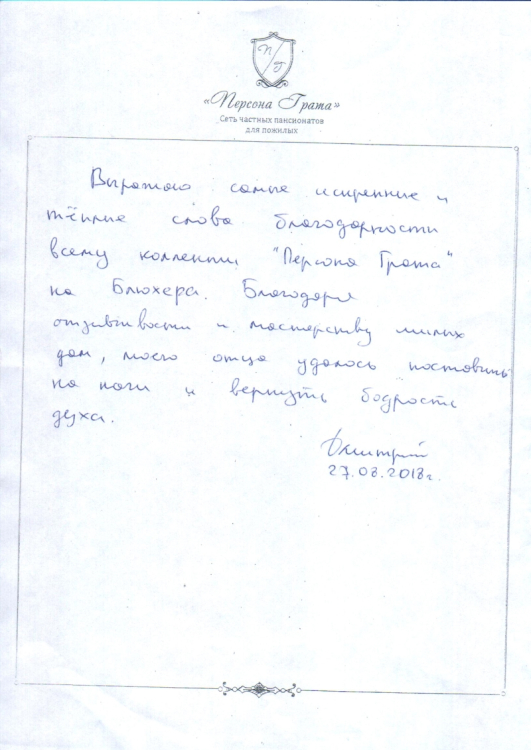 П/Г
«Персона Грата»
Сеть частных пансионатов
для пожилых
Выражаю самые искренние и
тёплые слова благодарности
всему коллекти "Персона Грата"
на Блюхера. Благодаря
отзывчивости и мастерству милых
дам, моего отца удалось поставить
на ноги и вернуть бодрость
духа.
Дмитрий
27.08.2018г.